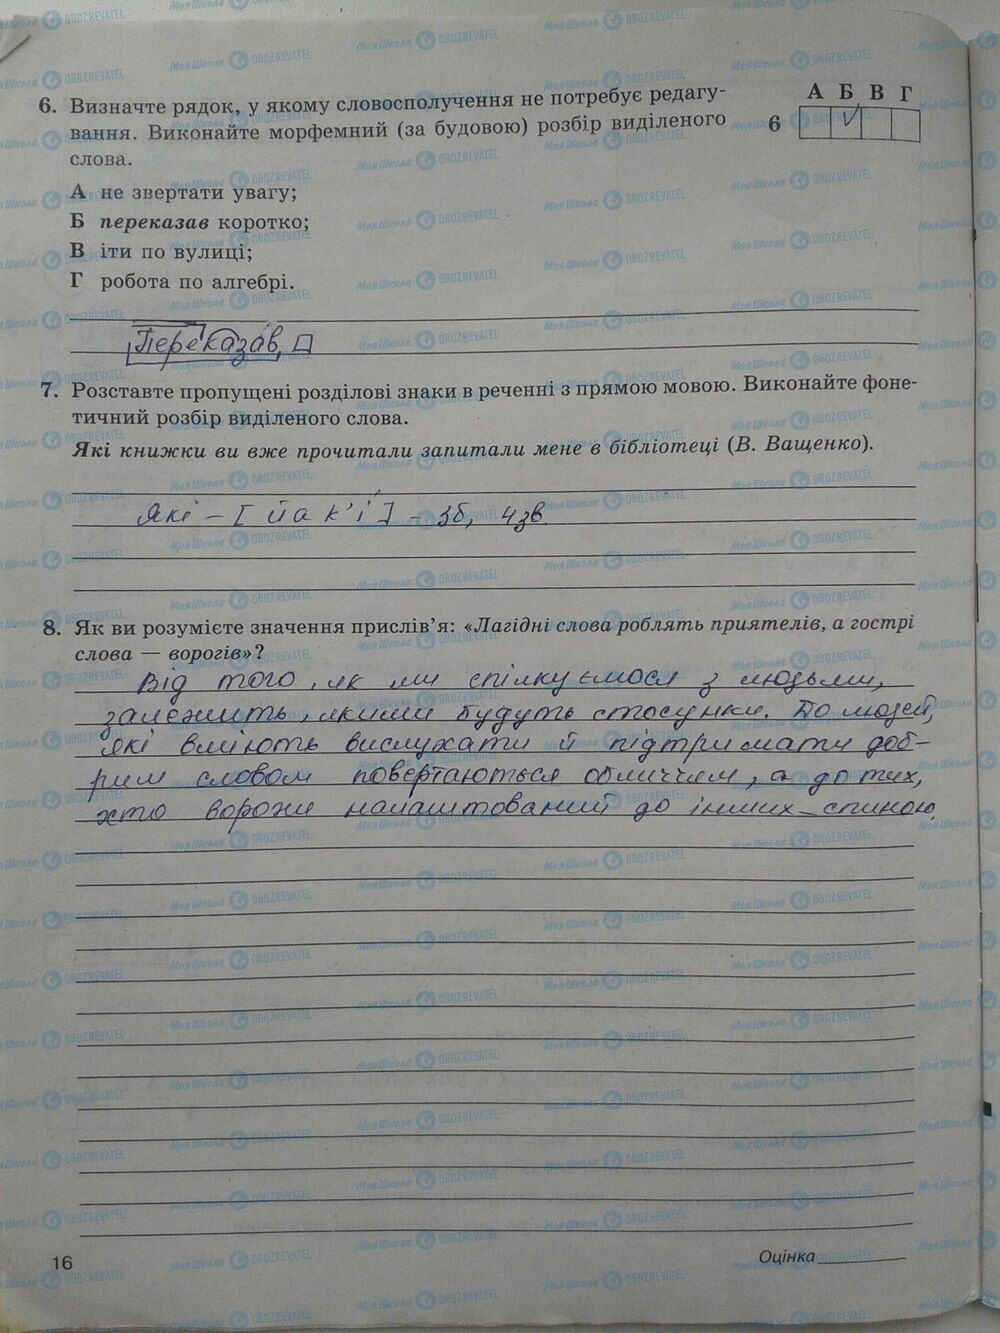 6. Визначте рядок, у якому словосполучення не потребує редагу-
вання. Виконайте морфемний (за будовою) розбір виділеного
слова.
А Б В Г
6
А не звертати увагу;
Б переказав коротко;
В іти по вулиці;
Г робота по алгебрі.
Переказав,
7. Розставте пропущені розділові знаки в реченні з прямою мовою. Виконайте фоне-
тичний розбір виділеного слова.
Які книжки ви вже прочитали запитали мене в бібліотеці (В. Ващенко).
Які – [йак'і] – 3б, 4зв.
8. Як ви розумієте значення прислів'я: «Лагідні слова роблять приятелів, а гострі
слова — ворогів»?
Від того, як ми спілкуємося з людьми,
залежить, якими будуть стосунки. До людей,
які вміють вислухати й підтримати доб-
рим словом повертаються обличчям, а до тих,
хто вороже налаштований до інших – спиною.
16
Оцінка
МояШкола OBOZREVATEL